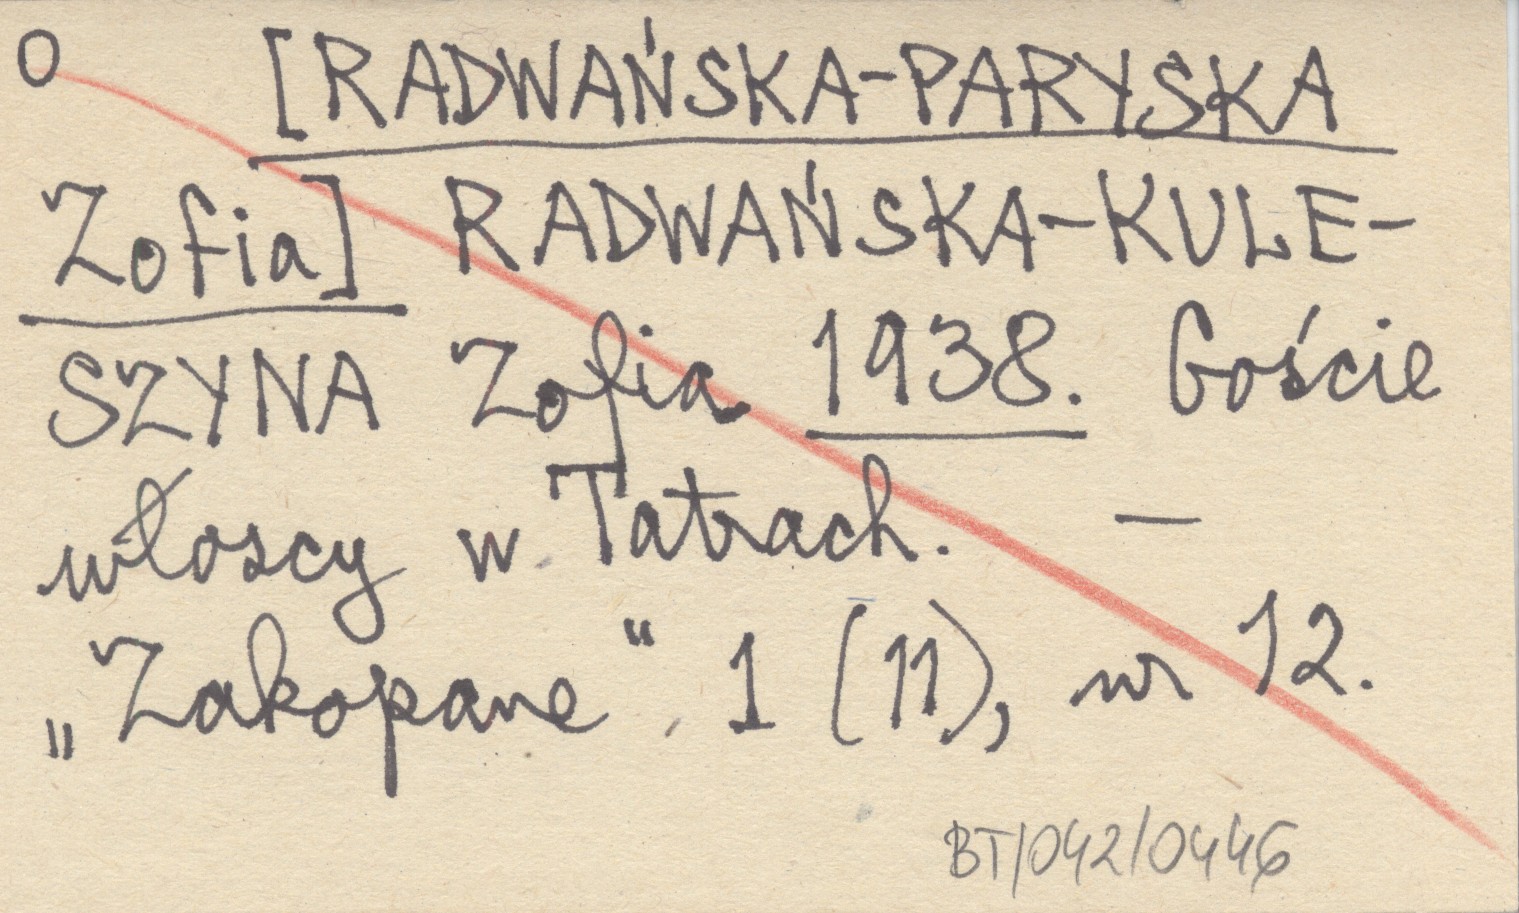 O [RADWAŃSKA-PARYSKA
Zofia] RADWAŃSKA-KULE-
SZYNA Zofia 1938. Goście
włoscy w Tatrach. —
„Zakopane" 1 (11), nr 12.
BT/042/0446